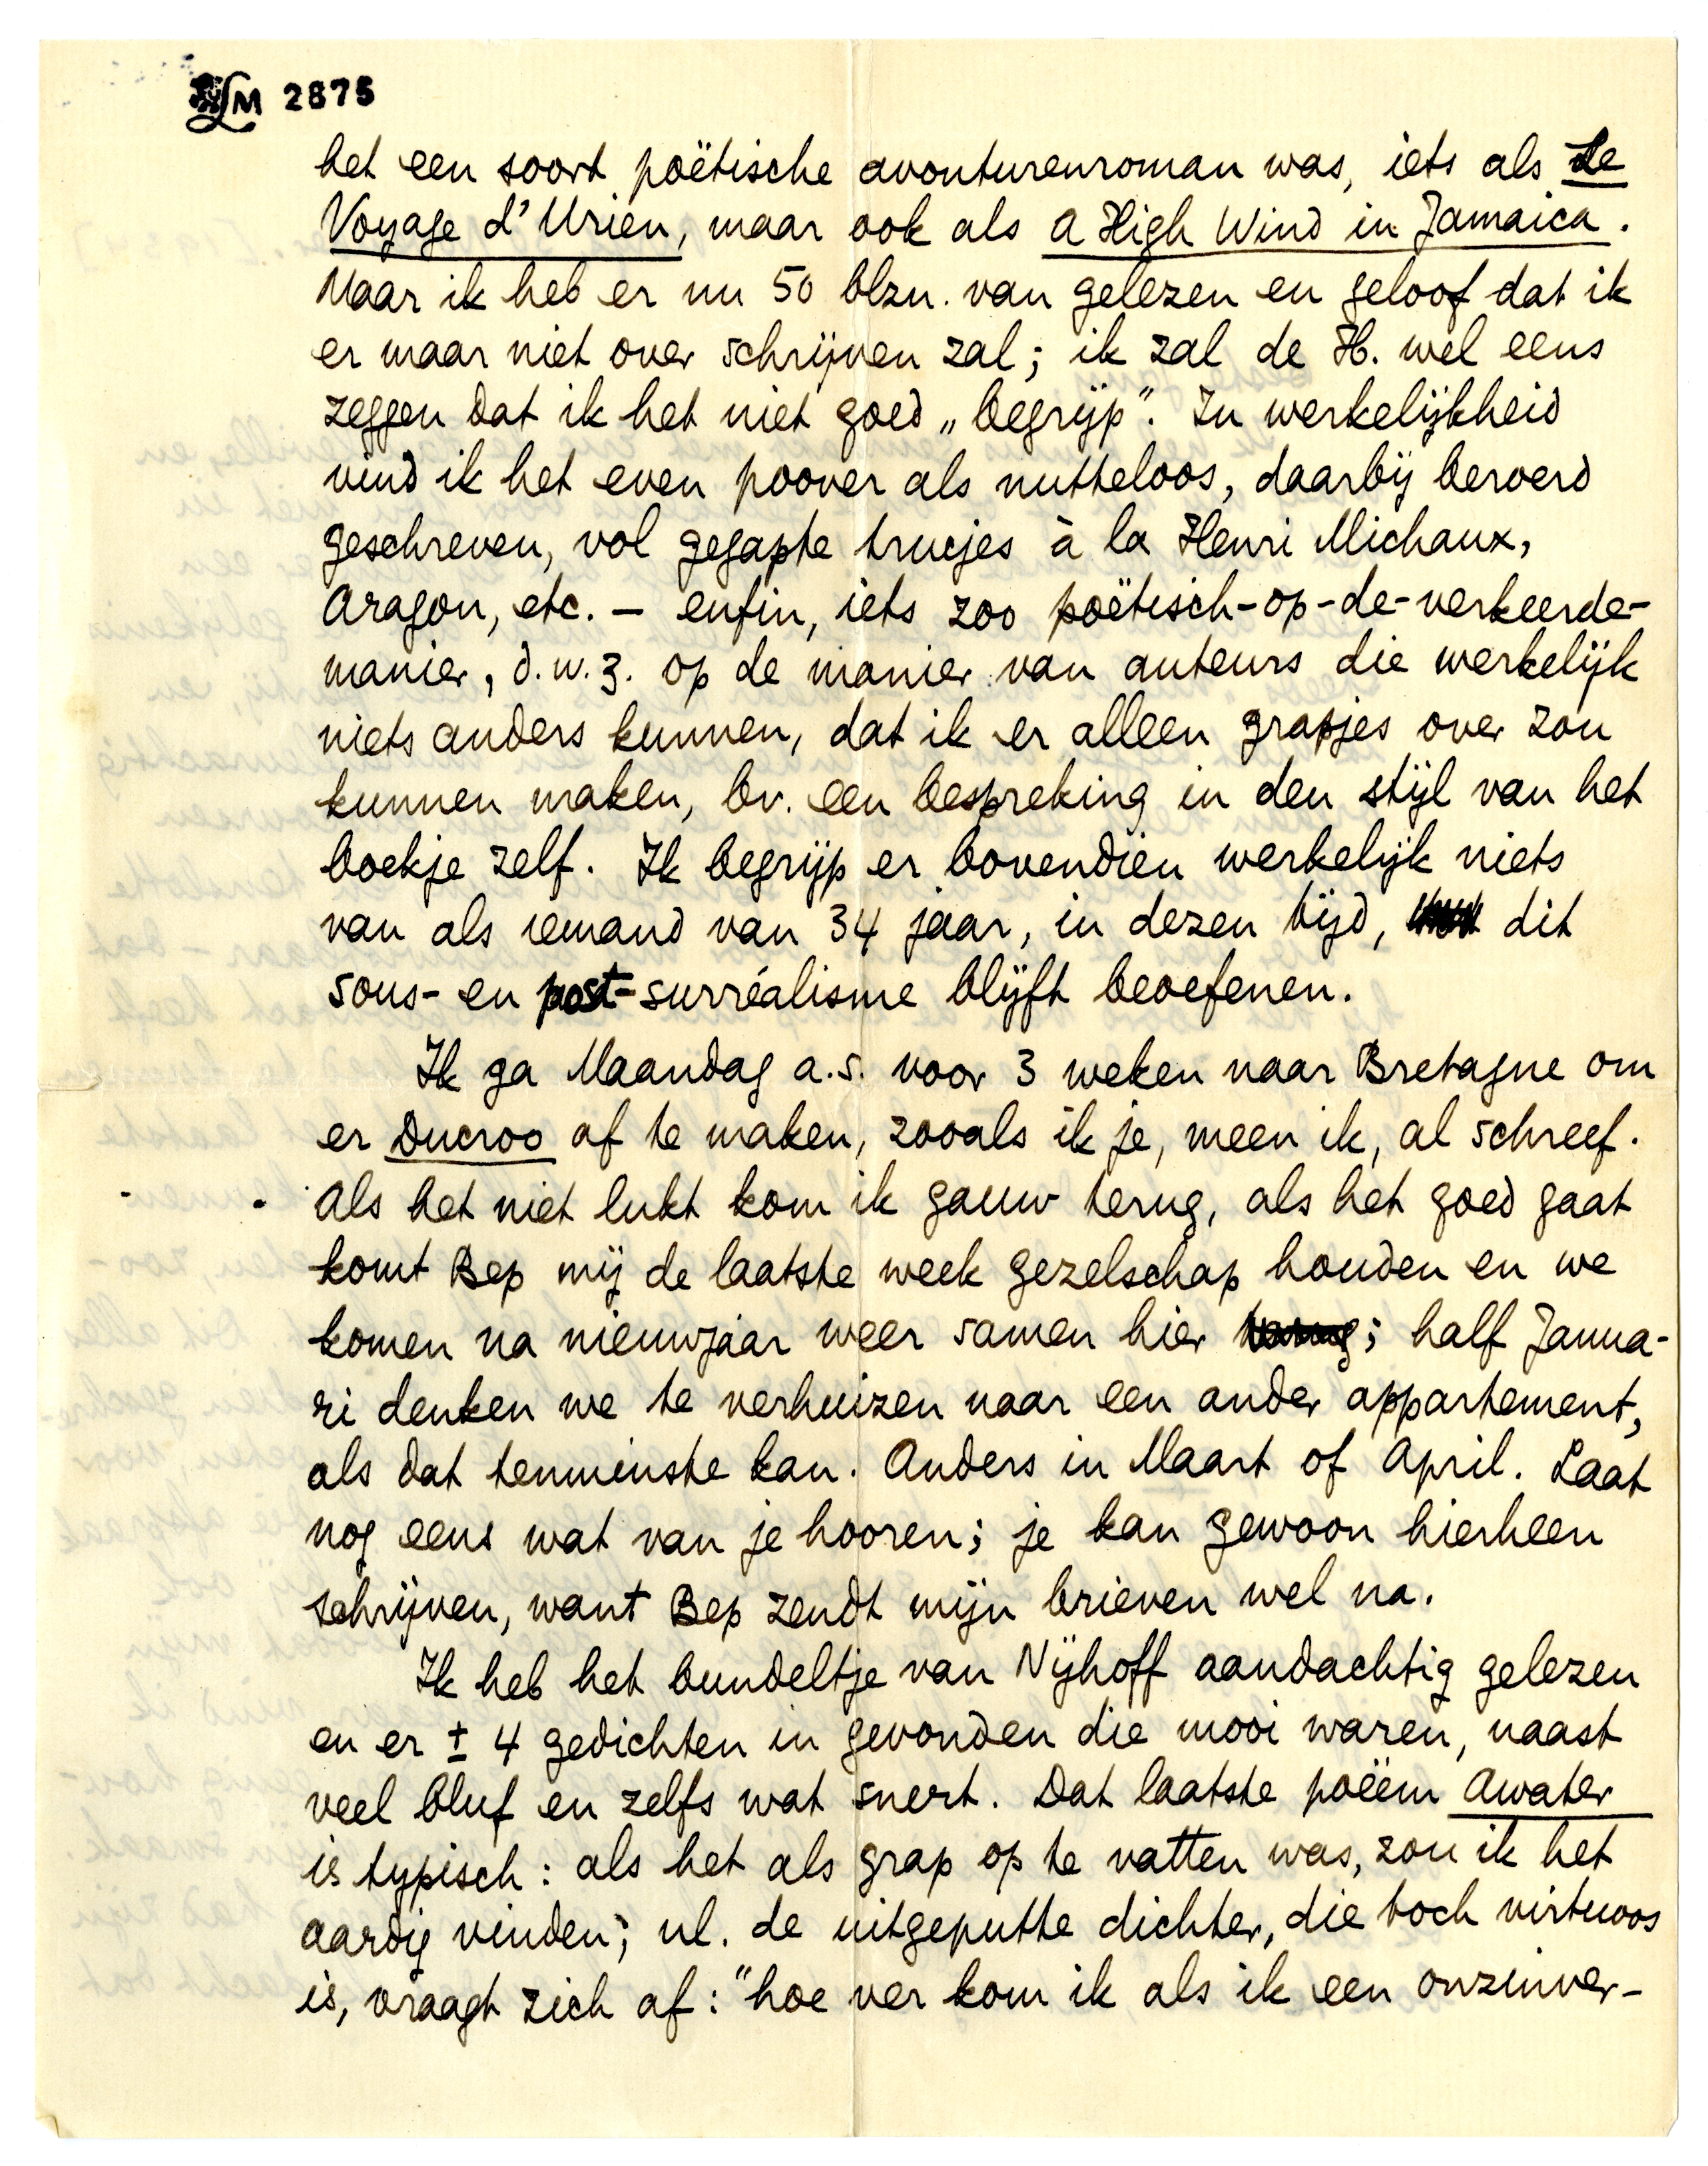 LM 2875
het een soort poëtische avonturenroman was, iets als Le
Voyage d'Urien, maar ook als A High Wind in Jamaica.
Maar ik heb er nu 50 blzn. van gelezen en geloof dat ik
er maar niet over schrijven zal; ik zal de H. wel eens
zeggen dat ik het niet goed „begrijp". In werkelijkheid
vind ik het even poover als nutteloos, daarbij beroerd
geschreven, vol gegapte trucjes à la Henri Michaux,
Aragon, etc. – enfin, iets zoo poëtisch-op-de-verkeerde-
manier, d.w.z. op de manier van auteurs die werkelijk
niets anders kunnen, dat ik er alleen grapjes over zou
kunnen maken, bv. een bespreking in den stijl van het
boekje zelf. Ik begrijp er bovendien werkelijk niets
van als iemand van 34 jaar, in dezen tijd, dit
sous- en post-surréalisme blijft beoefenen.
Ik ga Maandag a.s. voor 3 weken naar Bretagne om
er Ducroo af te maken, zooals ik je, meen ik, al schreef.
Als het niet lukt kom ik gauw terug, als het goed gaat
komt Bep mij de laatste week gezelschap houden en we
komen na nieuwjaar weer samen hier terug; half Janua-
ri denken we te verhuizen naar een ander appartement,
als dat tenminste kan. Anders in Maart of April. Laat
nog eens wat van je hooren; je kan gewoon hierheen
schrijven, want Bep zendt mijn brieven wel na.
Ik heb het bundeltje van Nijhoff aandachtig gelezen
en er ± 4 gedichten in gevonden die mooi waren, naast
veel bluf en zelfs wat snert. Dat laatste poëem Awater
is typisch: als het als grap op te vatten was, zou ik het
aardig vinden; nl. de uitgeputte dichter, die toch virtuoos
is, vraagt zich af: "hoe ver kom ik als ik een onzinver-